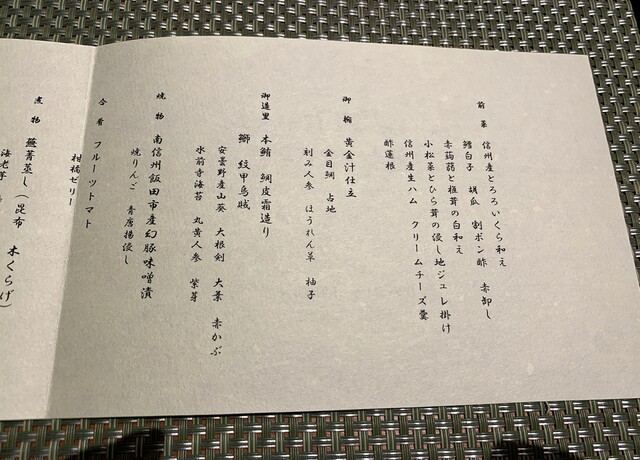 前菜 信州産とろろいくら和え
鱈白子 胡瓜 割ポン酢 赤卸し
赤蒟蒻と椎茸の白和え
小松菜とひら茸の浸し地ジュレ掛け
信州産生ハム クリームチーズ羹
酢蓮根
御椀 黄金汁仕立
金目鯛 占地
刻み人参 ほうれん草 柚子
御造里 本鮪 鯛皮霜造り
鰤 紋甲烏賊
安曇野産山葵 大根剣 大葉 赤かぶ
水前寺海苔 丸黄人参 紫芽
焼物 南信州飯田市産幻豚味噌漬
焼りんご 青唐揚浸し
合肴 フルーツトマト
柑橘ゼリー
煮物 蕪菁蒸し(昆布 木くらげ)
海老芋